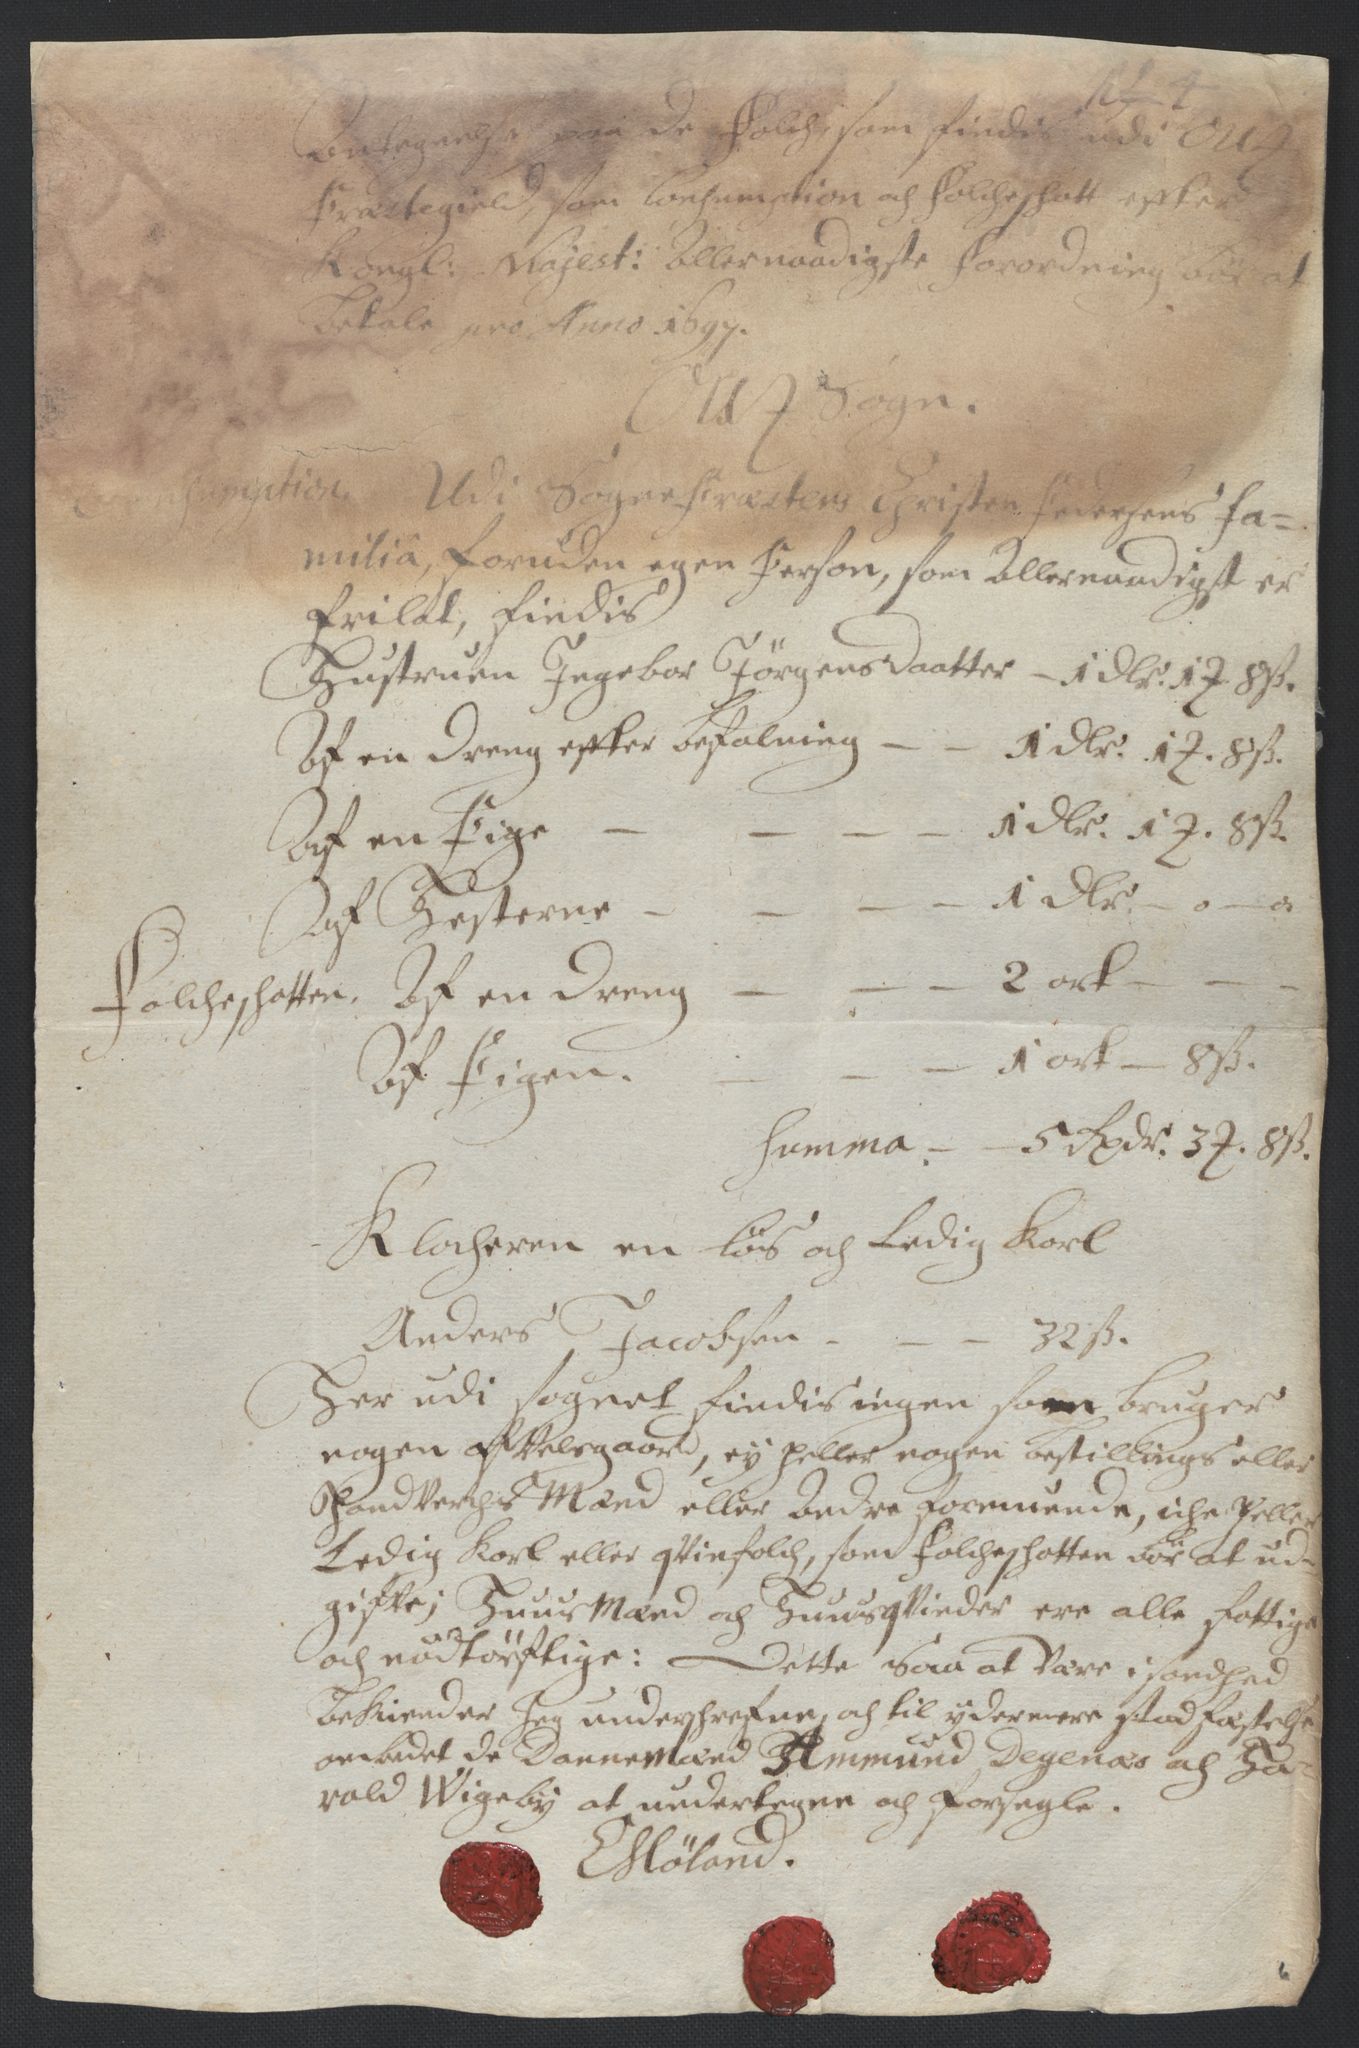 No 4
Antegnelse paa de Folch, som findis udi Oug
Præstegield, som Consumption och Folcheschatt effter
Kongl: Majest: Allernaadigste Forordning bör at
Betale pro Anno 1697.
Sogn.
Consumption. Udi Sognepræstens Christen Pedersens Fa=
milia, foruden egen Person, som Allernaadigst er
frilat, findis
Hustruen Ingebor Jörgens Daatter – 1 dlr. 1 ℥. 8 ß.
Af en dreng effter befalning – – 1 dlr. 1 ℥. 8 ß.
Af en Pige – – – – 1 dlr. 1 ℥. 8 ß.
Af Hesterne – – – – 1 dlr. – o – o
Folcheschatten. Af en dreng – – – 2 ort – – –
Af Pigen. – – – 1 ort – 8 ß.
Summa. – – 5 Rxdr. 3 ℥. 8 ß.
Klocheren en lös och Ledig Karl
Anders Jacobsen – – – 32 ß.
Her udi sognet findis ingen som bruger
nogen affvelsgaard, ey heller nogen bestillings eller
Handverchs Mænd eller bedre formuende, iche heller
Ledig Karl eller qvinfolch, som Folcheschatten bör at ud=
gifte; Huusmænd och Huusqvinder ere alle fattige
och nödtörftige: Dette saa at være i sandhed
Bekiender Jeg underschrefne, och til ydermere stadfæstelse
ombedet de Dannemænd Ammund Degenæs och Ha=
rald Wigeby at undertegne och forsegle.
CMöland.
6